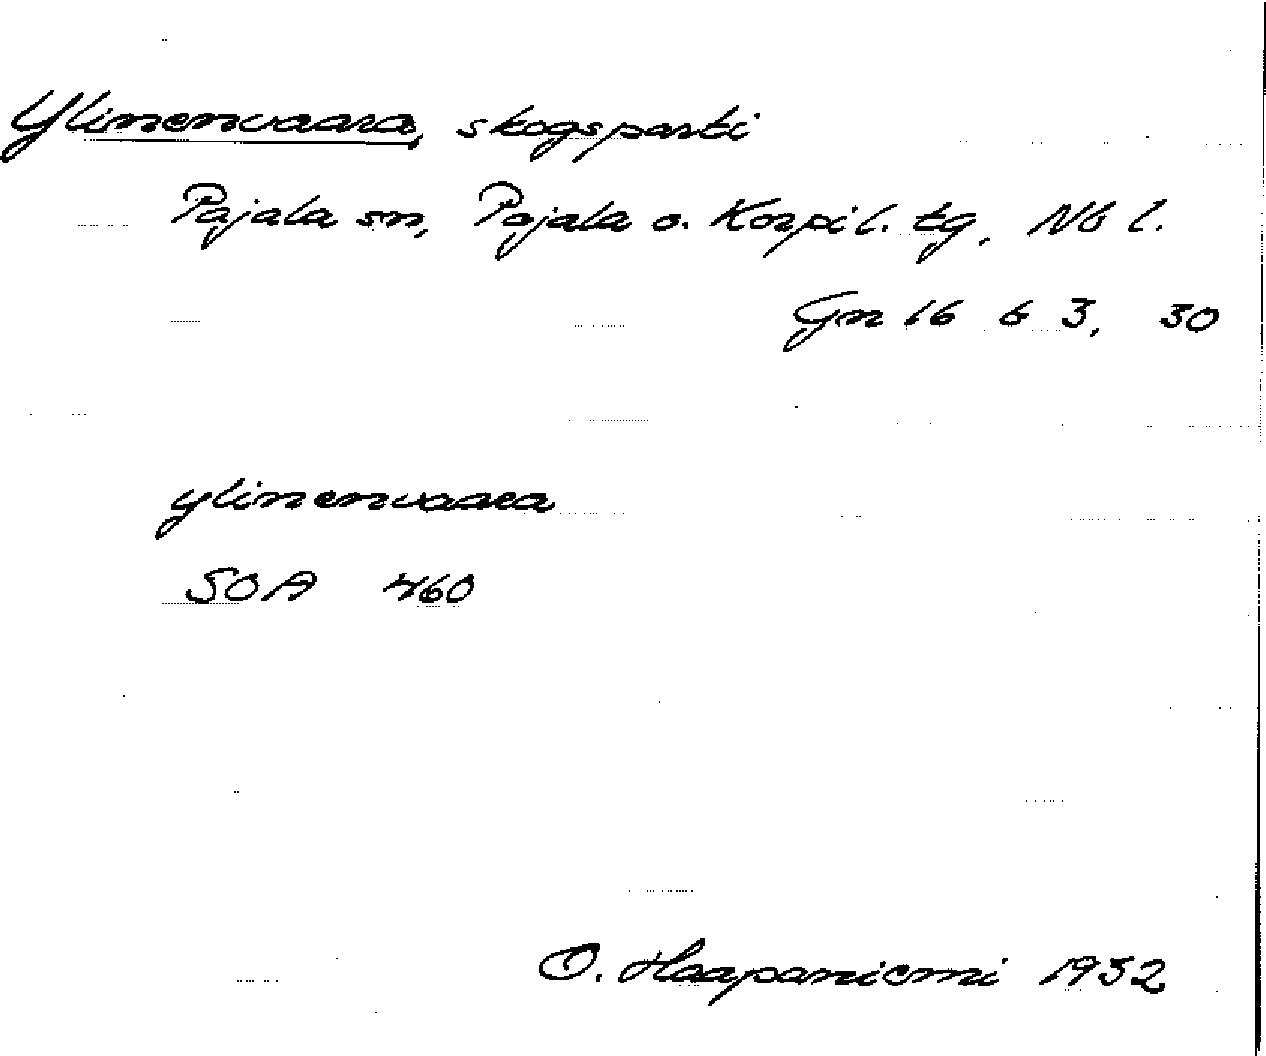 Ylinenvaara, skogsparti
Pajala sn, Pajala o. Korpil. tg, Nb l.
Gn 16 b 3, 30
ylinenvaara
SOA 460
O. Haapaniemi 1932